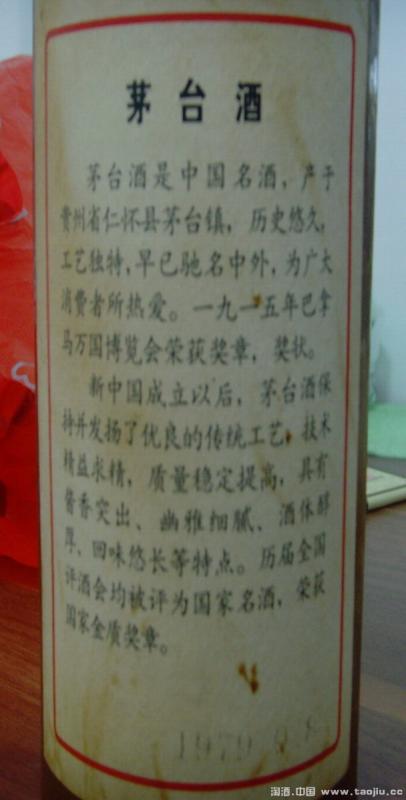 茅台酒
茅台酒是中国名酒，产于
贵州省仁怀县茅台镇，历史悠久，
工艺独特，早已驰名中外，为广大
消费者所热爱。一九一五年巴拿
马万国博览会荣获奖章，奖状。
新中国成立以后，茅台酒保
持并发扬了优良的传统工艺，技术
精益求精，质量稳定提高，具有
酱香突出、幽雅细腻、酒体醇
厚、回味悠长等特点。历届全国
评酒会均被评为国家名酒，荣获
国家金质奖章。
1979
淘酒.中国 www.taojiu.cc